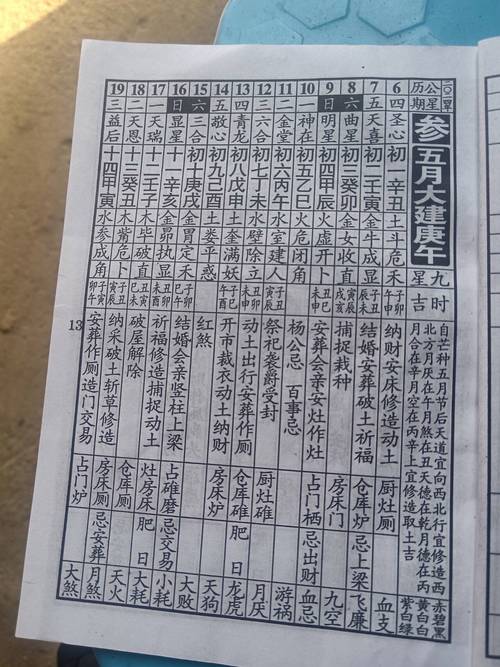 公历 星期
参 五月大建庚午
九星
吉时
自芒种五月节后天道宜向西北行宜修造西
北方月厌在午月煞在丑天德在乾月德在丙
月合在辛月空在丙辛上宜修造取土吉
赤碧黑
黄白白
紫白绿
6 四 圣心 初一辛丑 土斗危禾 纳财安床修造动土 厨灶厕 血支
7 五 天喜 初二壬寅 金牛成显 结婚安葬破土祈福 仓库炉 忌上梁 飞廉
8 六 曲星 初三癸卯 金女收直 捕捉栽种 房床门 九空
9 日 明星 初四甲辰 火虚开卜 安葬会亲安灶作灶 占门栖 忌出财 血忌
10 一 神在 初五乙巳 火危闭角 杨公忌 百事忌 游祸
11 二 金堂 初六丙午 水室建人 祭祀袭爵受封 厨灶碓 月厌
12 三 六合 初七丁未 水壁除立 动土出行安葬作厕 仓库碓 肥日 龙虎
13 四 青龙 初八戊申 土奎满妖 开市裁衣动土纳财 房床炉 天狗
14 五 敬心 初九己酉 土娄平惑 红煞 大败
15 六 三合 初十庚戌 金胃定禾 结婚会亲竖柱上梁 占碓磨 忌交易 小耗
16 日 显星 十一辛亥 金昴执显 祈福修造捕捉动土 灶房床 肥日 大耗
17 一 天瑞 十二壬子 木毕破直 破屋解除 仓库厕 天火
18 二 天恩 十三癸丑 木觜危卜 纳采破土斩草修造 房床厕 忌安葬 月煞
19 三 益后 十四甲寅 水参成角 安葬作厕造门交易 占门炉 大煞
13